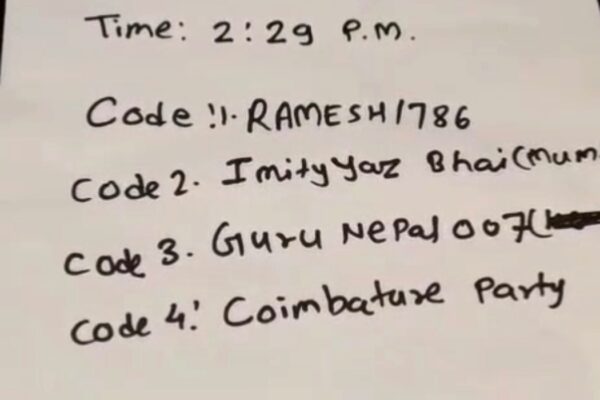 Time: 2:29 P.M.
Code !1. RAMESH1786
Code 2. Imityyaz Bhai(Mum
Code 3. Guru Nepal 007(
Code 4! Coimbature Party